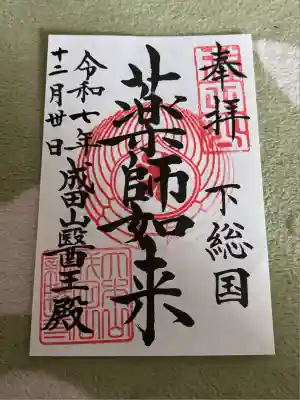 奉拝
下総国
薬師如来
成田山醫王殿
令和七年
十二月廿日